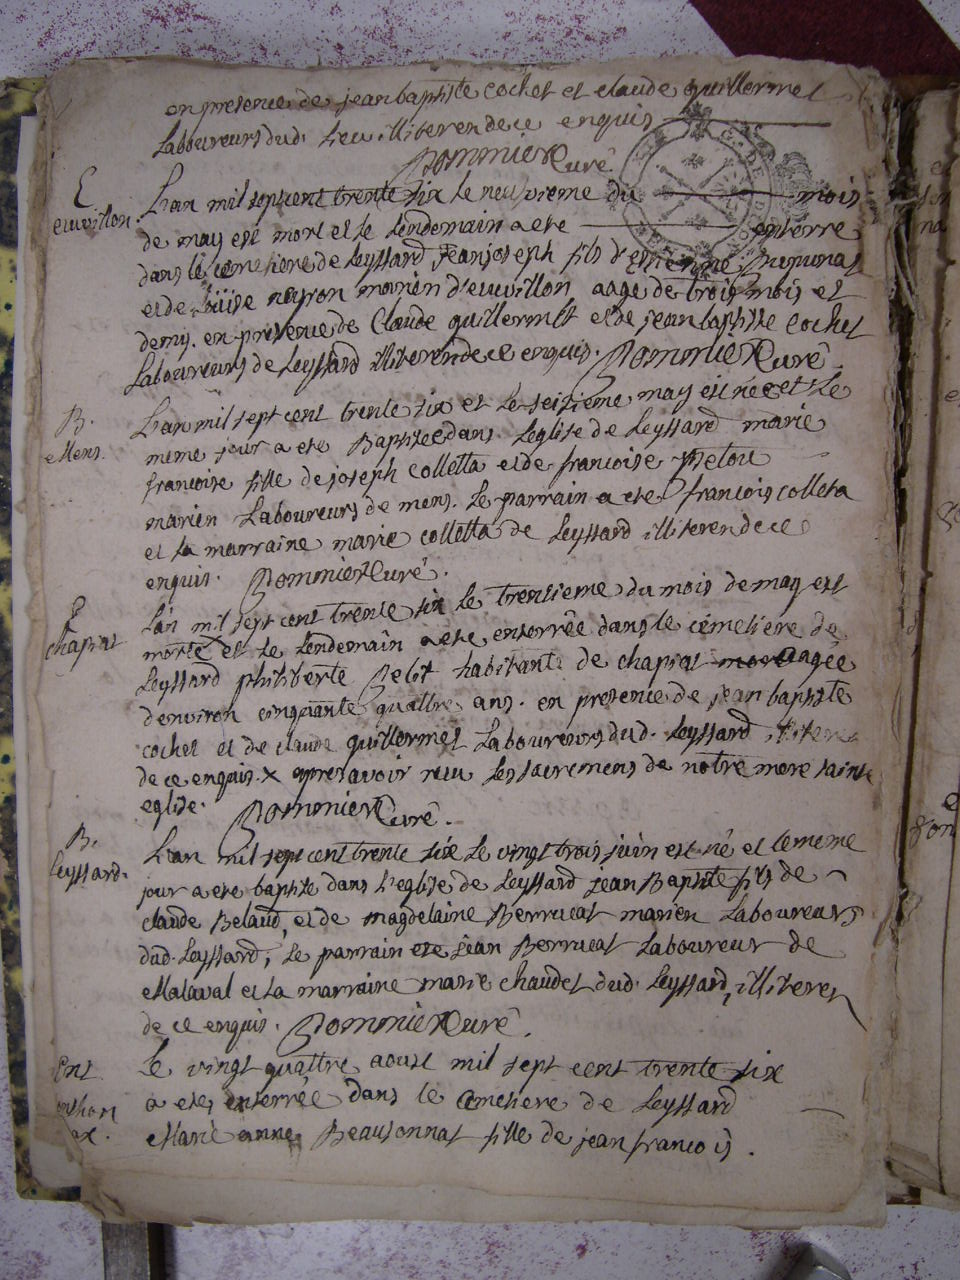 en presence de jean baptiste cochet et claude quillermet
Laboureurs dud. Lieu illiteren de ce enquis
Pommier Curé
E
euvillon.
L'an mil sept cent trente six le neuvieme du mois
de may est mort et le Lendemain a ete enterre
dans le cemetiere de Leyssard Jean joseph fils d'estienne
et de neyron mariën d'euvillon aagé de trois mois et
demis. en presence de Claude quillermet et de jean baptiste cochet
Laboureurs de Leyssard illiteren de ce enquis. Pommier Curé.
B.
Mens.
L'an mil sept cent trente six et le seizieme may est née et le
meme jour a ete Baptisée dans Leglise de Leyssard marie
francoise fille de joseph colletta et de francoise
marien Laboureurs de mens. Le parrain a ete francois colleta
et la marraine marie colletta de Leyssard illiteren de ce
enquis. Pommier Curé.
E
chapiat
L'an mil sept cent trente six le trentieme du mois de may est
morte x et le Lendemain a ete enterrée dans le cemetiere de
Leyssard philiberte habitante de chapiat aagée
d'environ cinquante quattre ans. en presence de jean baptiste
cochet et de claude quillermet Laboureurs dud. Leyssard illiteres
de ce enquis. x apres avoir reçu les sacremens de notre mere sainte
eglise. Pommier Curé.
B.
Leyssard.
L'an mil sept cent trente six le vingt trois juin est né et le meme
jour a ete baptisé dans L'eglise de Leyssard jean Baptiste fils de
claude Belaud, et de magdelaine Berrucat marien Laboureurs
dud. Leyssard, Le parrain ete jean Berrucat Laboureur de
Malaval et la marraine marie chaudet dud. Leyssard, illiteres
de ce enquis. Pommier Curé.
Ent
Le vingt quattre aoust mil sept cent trente six
a ete enterrée dans le cemetiere de Leyssard
Marie anne Beausonnat fille de jean francois.